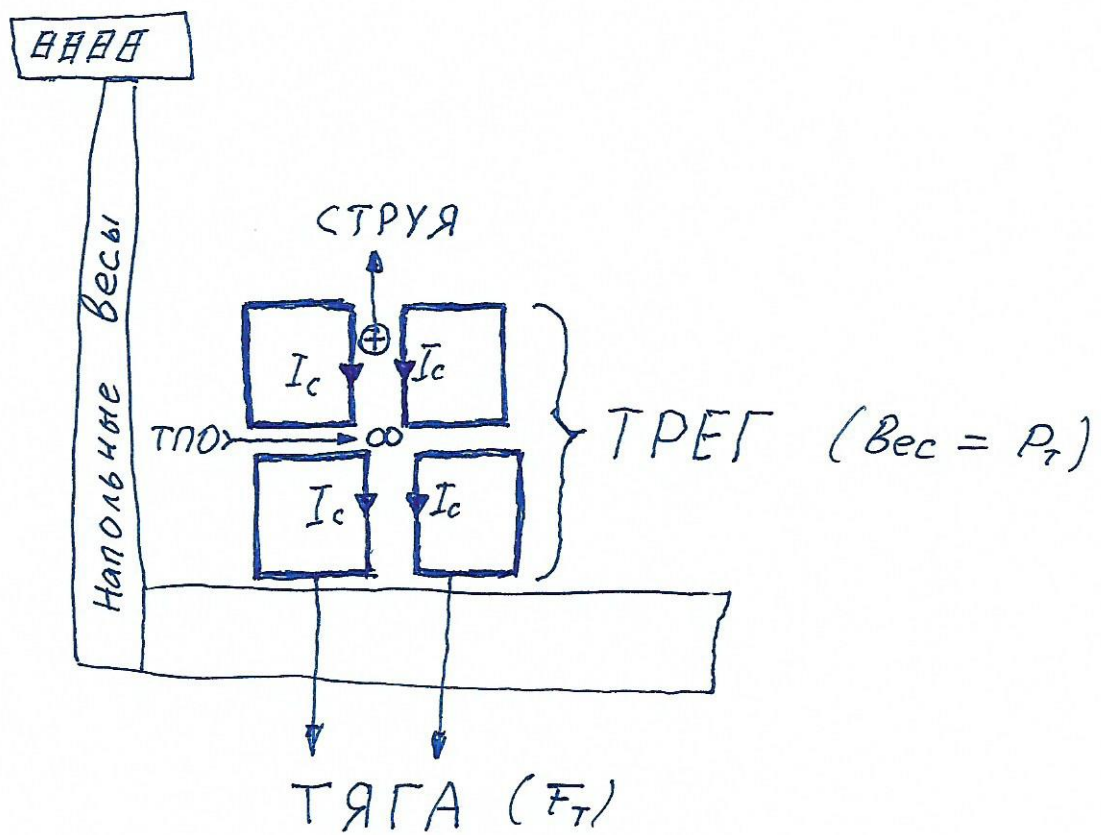 8888
Напольные весы
СТРУЯ
+
Ic
Ic
ТПО
∞
Ic
Ic
ТРЕГ (Вес = Pт)
ТЯГА (Fт)